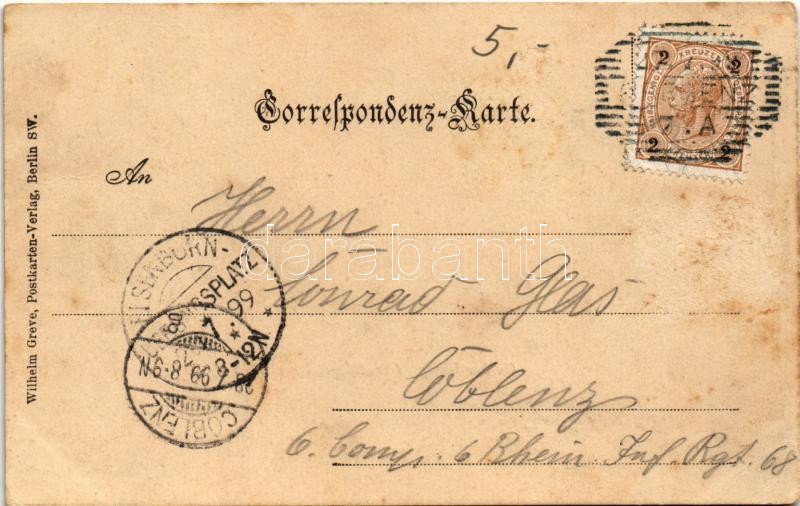 5,-
2 KREUZER 2
7. A
2 2
Correspondenz-Karte.
An
Herrn
Conrad Glas
Coblenz
6. Comp. 6 Rhein Inf. Rgt. 68
ELSENBORN-
99
8-12N
8-9N
COBLENZ
Wilhelm Greve, Postkarten-Verlag, Berlin SW.
darabanth